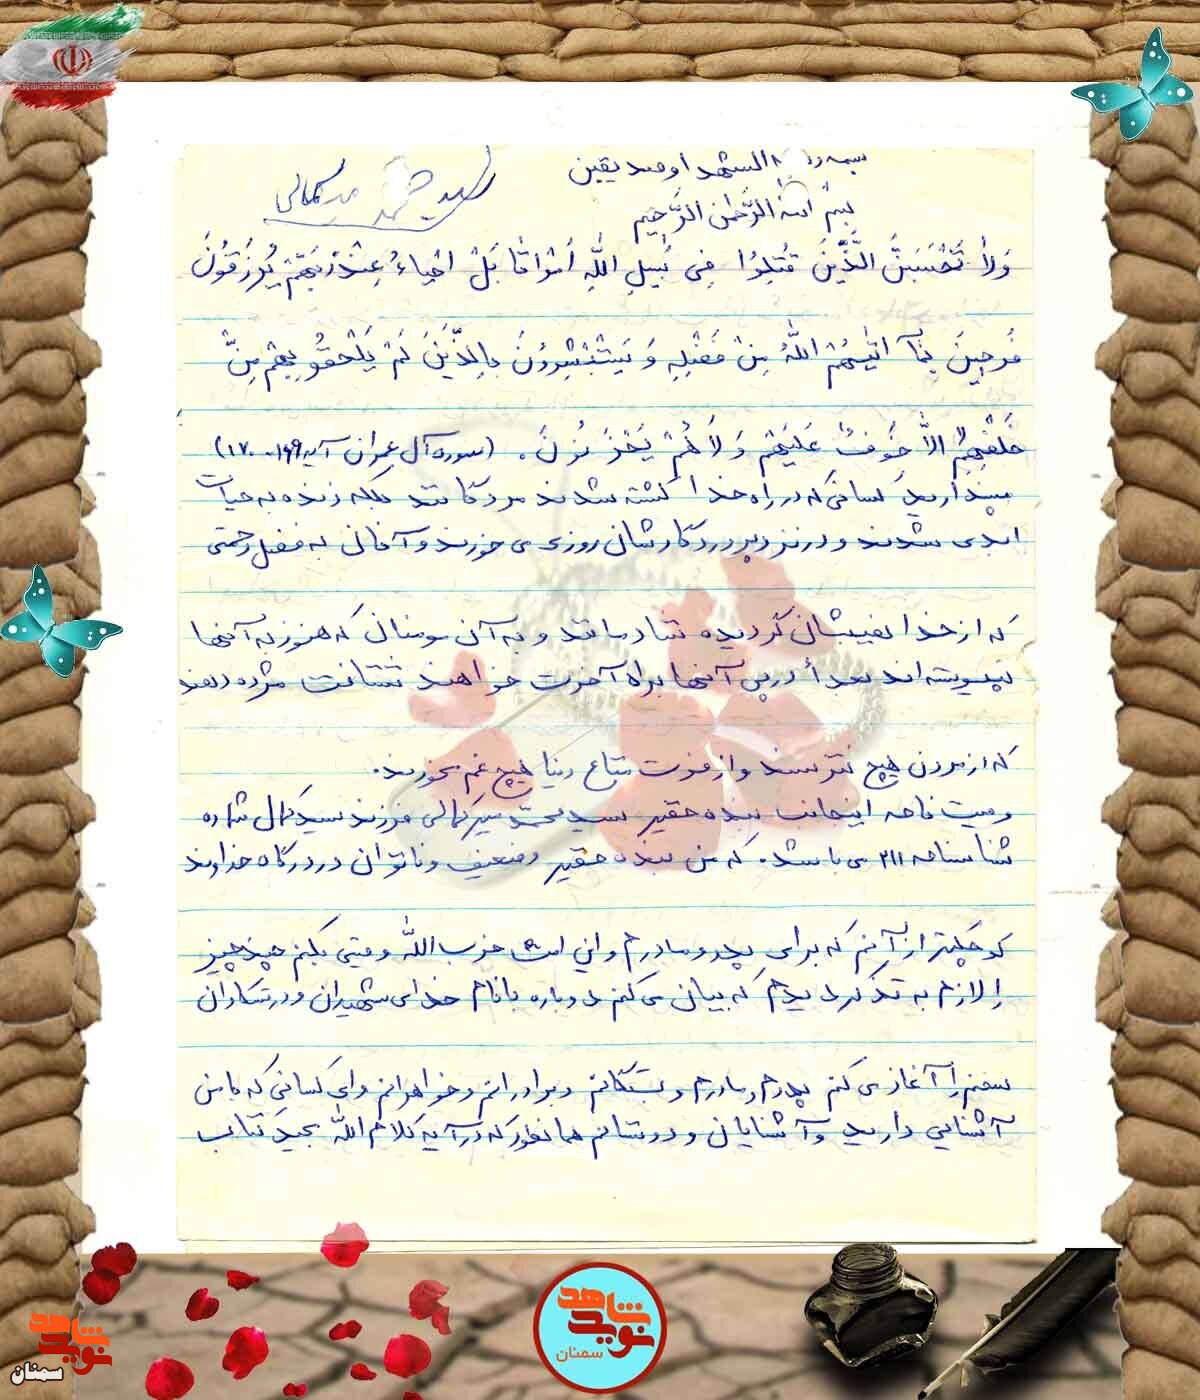 بسمه رب الشهدا و صدیقین
سید محمد میرکمالی
بسم الله الرَّحمن الرَّحیم
وَلاٰ تَحْسَبَنَّ الَّذّینَ قُتِلوُا فِی سَبیلِ اللّهِ اَمْوٰاتًا بَلْ اَحْیاءُ عِنْدَ رَبِّهِمْ یُرْزَقُونَ
فَرِحِینَ بِمٰا آتیٰهُمُ اللّهُ مِنْ فَضْلِهِ وَ یَسْتَبْشِروُنَ بِالَّذّینَ لَمْ یَلْحَقُو بِهِمْ مِنّْ
خَلْفِهِمْ اَلاّٰ خَوْفُ عَلَیْهِمْ وَ لاٰ هُمْ یَحْزَنُونَ. (سوره آل عمران آیه ۱۶۹-۱۷۰)
مپندارید کسانی که در راه خدا کشته شدند مردگانند بلکه زنده به حیات
ابدی شدند و در نزد پروردگارشان روزی می خورند و آنانی به فضل رحمتی
که از خدا نصیبشان گردیده شادمانند و به آن مومنان که هنوز به آنها
نپیوسته اند بعداً در پی آنها براه آخرت خواهند شتافت مژده دهند
که از مردن هیچ نترسند و از فوت متاع دنیا هیچ غم نخورند.
وصیت نامه اینجانب بنده حقیر سید محمّد میرکمالی فرزند سید کمال شماره
شناسنامه ۲۱۱ می باشد. که من بنده حقیر و ضعیف و ناتوان در درگاه خداوند
کوچکتر از آنم که برای پدر و مادرم و این امت حزب اللّه وصیتی بکنم چند چیز
را لازم به تذکر دیدم که بیان می کنم دوباره بانام خدای شهیدان و رستگاران
سخنم را آغاز می کنم پدرم و مادرم و بستگانم و برادرانم و خواهرانم و ای کسانی که با من
آشنایی دارید و آشنایان و دوستانم همانطور که در آیه کلام اللّه مجید کتاب
نوید شاهد
سمنان
نوید شاهد
سمنان